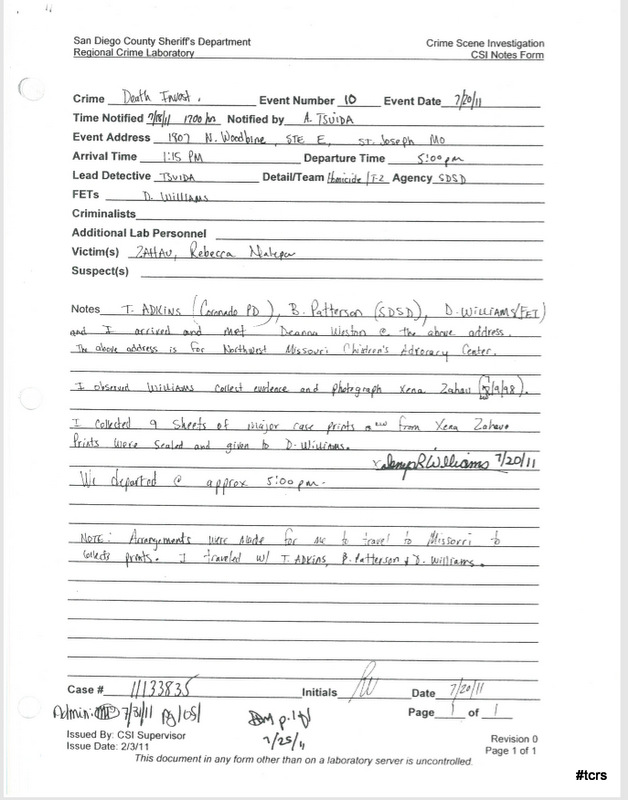 San Diego County Sheriff's Department
Regional Crime Laboratory
Crime Scene Investigation
CSI Notes Form
Crime Death Invest. Event Number 10 Event Date 7/20/11
Time Notified 7/18/11 1700 hrs Notified by A. TSUIDA
Event Address 1807 N. Woodbine, STE E, ST. Joseph MO
Arrival Time 1:15 PM Departure Time 5:00 pm
Lead Detective TSUIDA Detail/Team Homicide/T-2 Agency SDSD
FETs D. Williams
Criminalists
Additional Lab Personnel
Victim(s) ZAHAU, Rebecca
Suspect(s)
Notes T. ADKINS (Coronado PD), B. Patterson (SDSD), D. WILLIAMS (FET)
and I arrived and met Deanna Weston @ the above address.
The above address is for Northwest Missouri Children's Advocacy Center.
I observed Williams collect evidence and photograph Xena Zahau (8/9/98).
I collected 9 Sheets of major case prints from Xena Zahau
Prints were sealed and given to D. Williams.
Williams 7/20/11
We departed @ approx 5:00pm.
NOTE: Arrangements were made for me to travel to Missorri to
collects prints. I traveled w/ T. ADKINS, B. Patterson & D. Williams.
Case # 11133835 Initials Date 7/20/11
Page 1 of 1
Admin: 7/31/11 pg/OS/
p. 1 of 1
7/25/11
Issued By: CSI Supervisor
Issue Date: 2/3/11
Revision 0
Page 1 of 1
This document in any form other than on a laboratory server is uncontrolled.
#tcrs